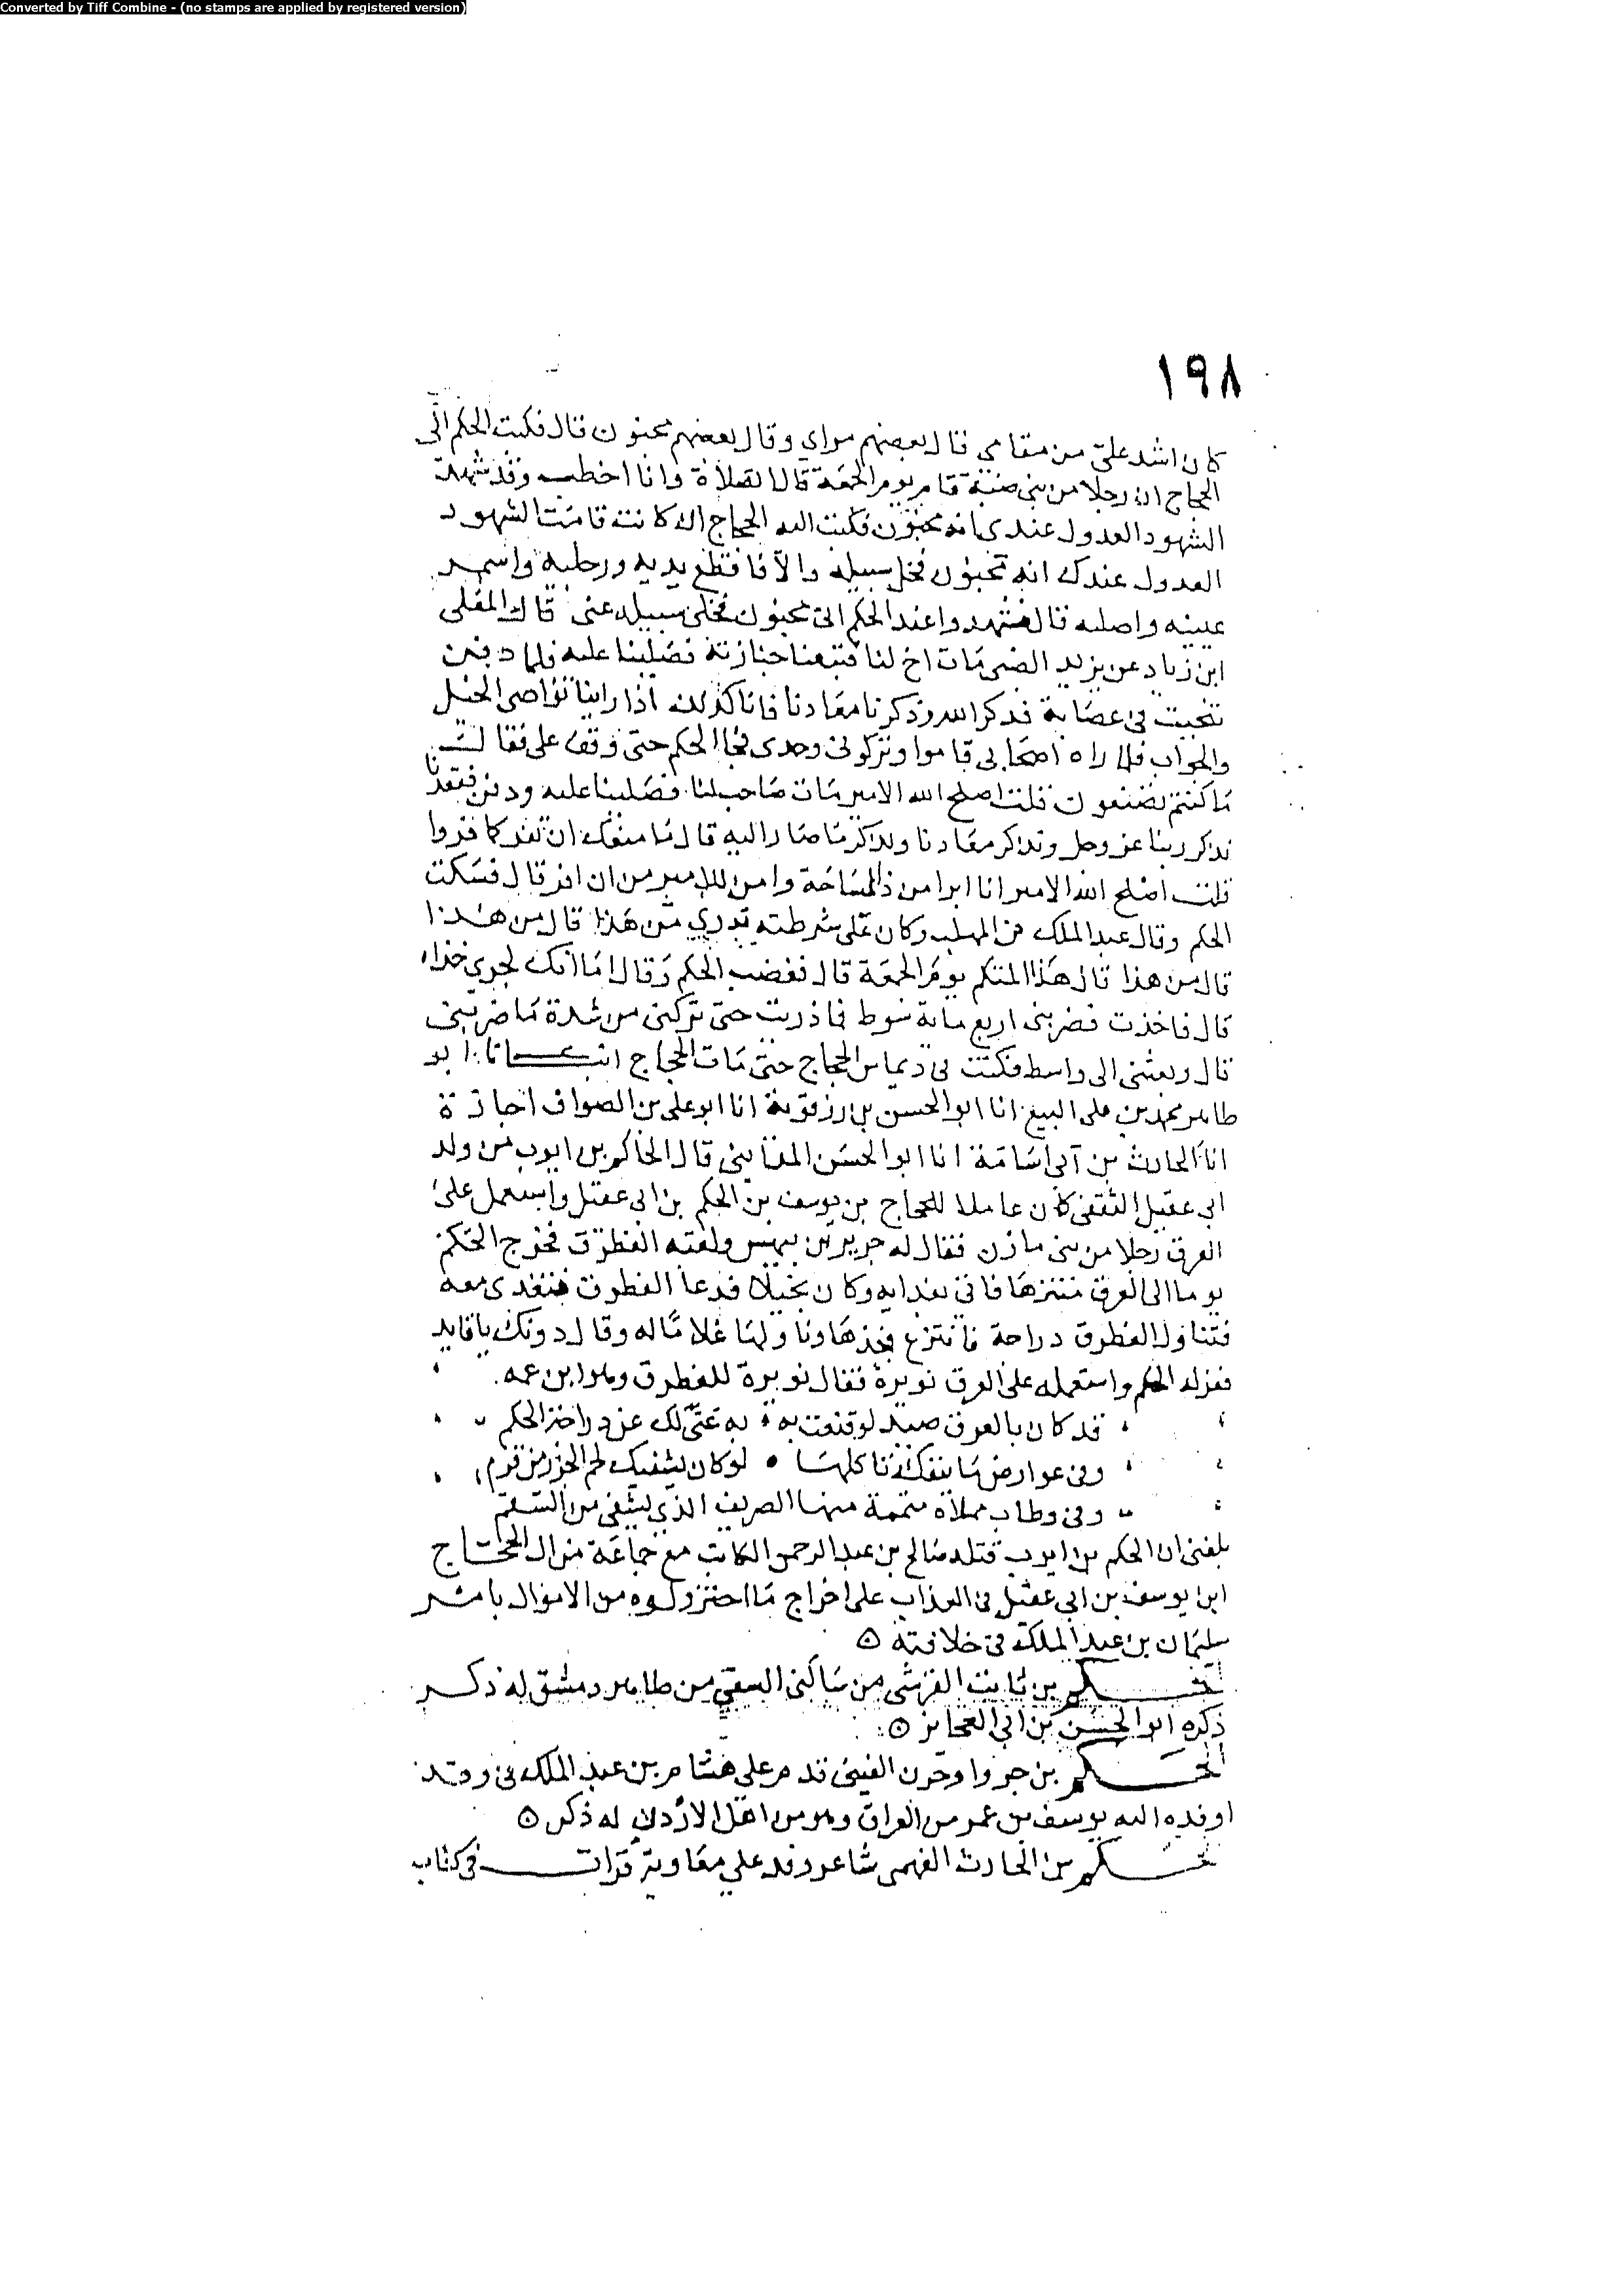 Converted by Tiff Combine - (no stamps are applied by registered version)
١٩٨
كان اشد علىّ من مقامي قال بعضهم مراي وقال بعضهم مجنون قال فكتب الحكم الى
الحجاج ان رجلا من بني ضبة قام يوم الجمعة قال الصلاة وانا اخطب وقد شهد
الشهود العدول عندى انه مجنون فكتب اليه الحجاج ان كانت قامت الشهود
العدول عندك انه مجنون فخل سبيله والا فاقطع يديه ورجليه واسمر
عينيه واصلبه قال فشهدوا عند الحكم انى مجنون فخلى سبيله عنى قال المعلى
ابن زياد عن يزيد الضبى مات اخ لنا فتبعنا جنازته فصلينا عليه فلما دفن
تنحيت فى عصابة فذكرنا الله وذكرنا معادنا فانا كذلك اذا راينا نواصى الخيل
والحراب فلما راه اصحابى قاموا وتركونى وحدى فجا الحكم حتى وقف على فقال
ما كنتم تصنعون قلت اصلح الله الامير مات صاحب لنا فصلينا عليه ودفن فقعدنا
نذكر ربنا عز وجل ونذاكر معادنا ونذاكر ما صار اليه قال ما منعك ان تفر كما فروا
قلت اصلح الله الامير انا ابرا من ذلك ساحة وامن للامير من ان افر قال فسكت
الحكم وقال عبد الملك بن المهلب وكان على شرطته تدري من هذا قال من هذا
قال من هذا قال هذا المتكلم يوم الجمعة قال فغضب الحكم وقال اما انك لجرى خذاه
قال فاخذت فضربنى اربع مائة سوط فما دريت حتى تركنى من شدة ما ضربنى
قال وبعثنى الى واسط فكنت فى ديماس الحجاج حتى مات الحجاج انبـــانا ابو
طاهر محمد بن على البيع انا ابو الحسن بن رزقويه انا ابو على بن الصواف اجازة
انا الحارث بن ابى اسامة انا ابو الحسن المدايني قال الحاكم بن ايوب من ولد
ابى عقيل الثقفى كان عاملا للحجاج بن يوسف بن الحكم بن ابى عقيل واستعمل على
العرق رجلا من بنى مازن فقال له جرير بن بيهس ولقبه العطرق فخرج الحكم
يوما الى العرق متنزها فاتى بغدايه وكان بخيلا فدعا العطرق فتغدى معه
فتناول العطرق دراجة فانتزع فخذها وناولها غلاما له وقال دونك يا قايد
فعزله الحكم واستعمله على العرق نويرة فقال نويرة للعطرق وهو ابن عمه
قد كان بالعرق صيد لو قنعت به به غنى لك عن دراجة الحكم
وفى عوارض ما ينفك تاكلها لو كان يشفيك لحم الجزر من قرم
وفى وطاب مملاة متممة منها الصريف الذي يشفى من السقم
بلغنى ان الحكم بن ايوب قتله صالح بن عبد الرحمن الكاتب مع جماعة من ال الحجاج
ابن يوسف بن ابى عقيل فى العذاب على اخراج ما اختزلوه من الاموال بامر
سليمان بن عبد الملك فى خلافته ٥
الحكم بن ثابت القرشى من ساكنى من ظاهر دمشق له ذكر
ذكره ابو الحسن بن ابى العجايز ٥
الحكم بن قدم على هشام بن عبد الملك فى وفد
اوفده اليه يوسف بن عمر من العراق وهو من اهل الاردن له ذكر ٥
حكم بن الحارث الفهمى شاعر وفد على معاوية قرات فى كتاب